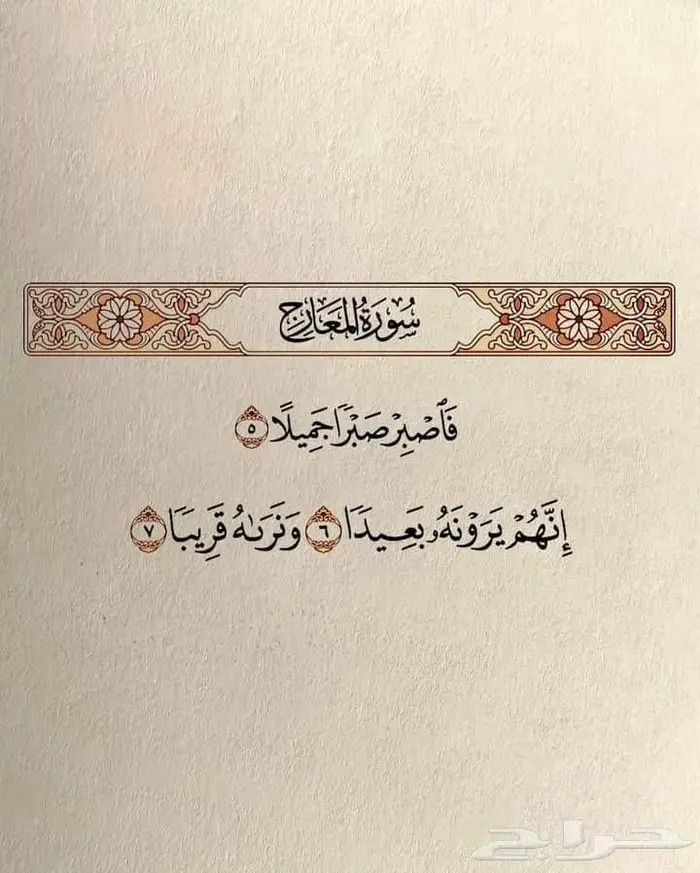 سُورَةُ المَعَارِجِ
فَٱصۡبِرۡ صَبۡرٗا جَمِيلًا ٥
إِنَّهُمۡ يَرَوۡنَهُۥ بَعِيدٗا ٦ وَنَرَىٰهُ قَرِيبٗا ٧
حراج